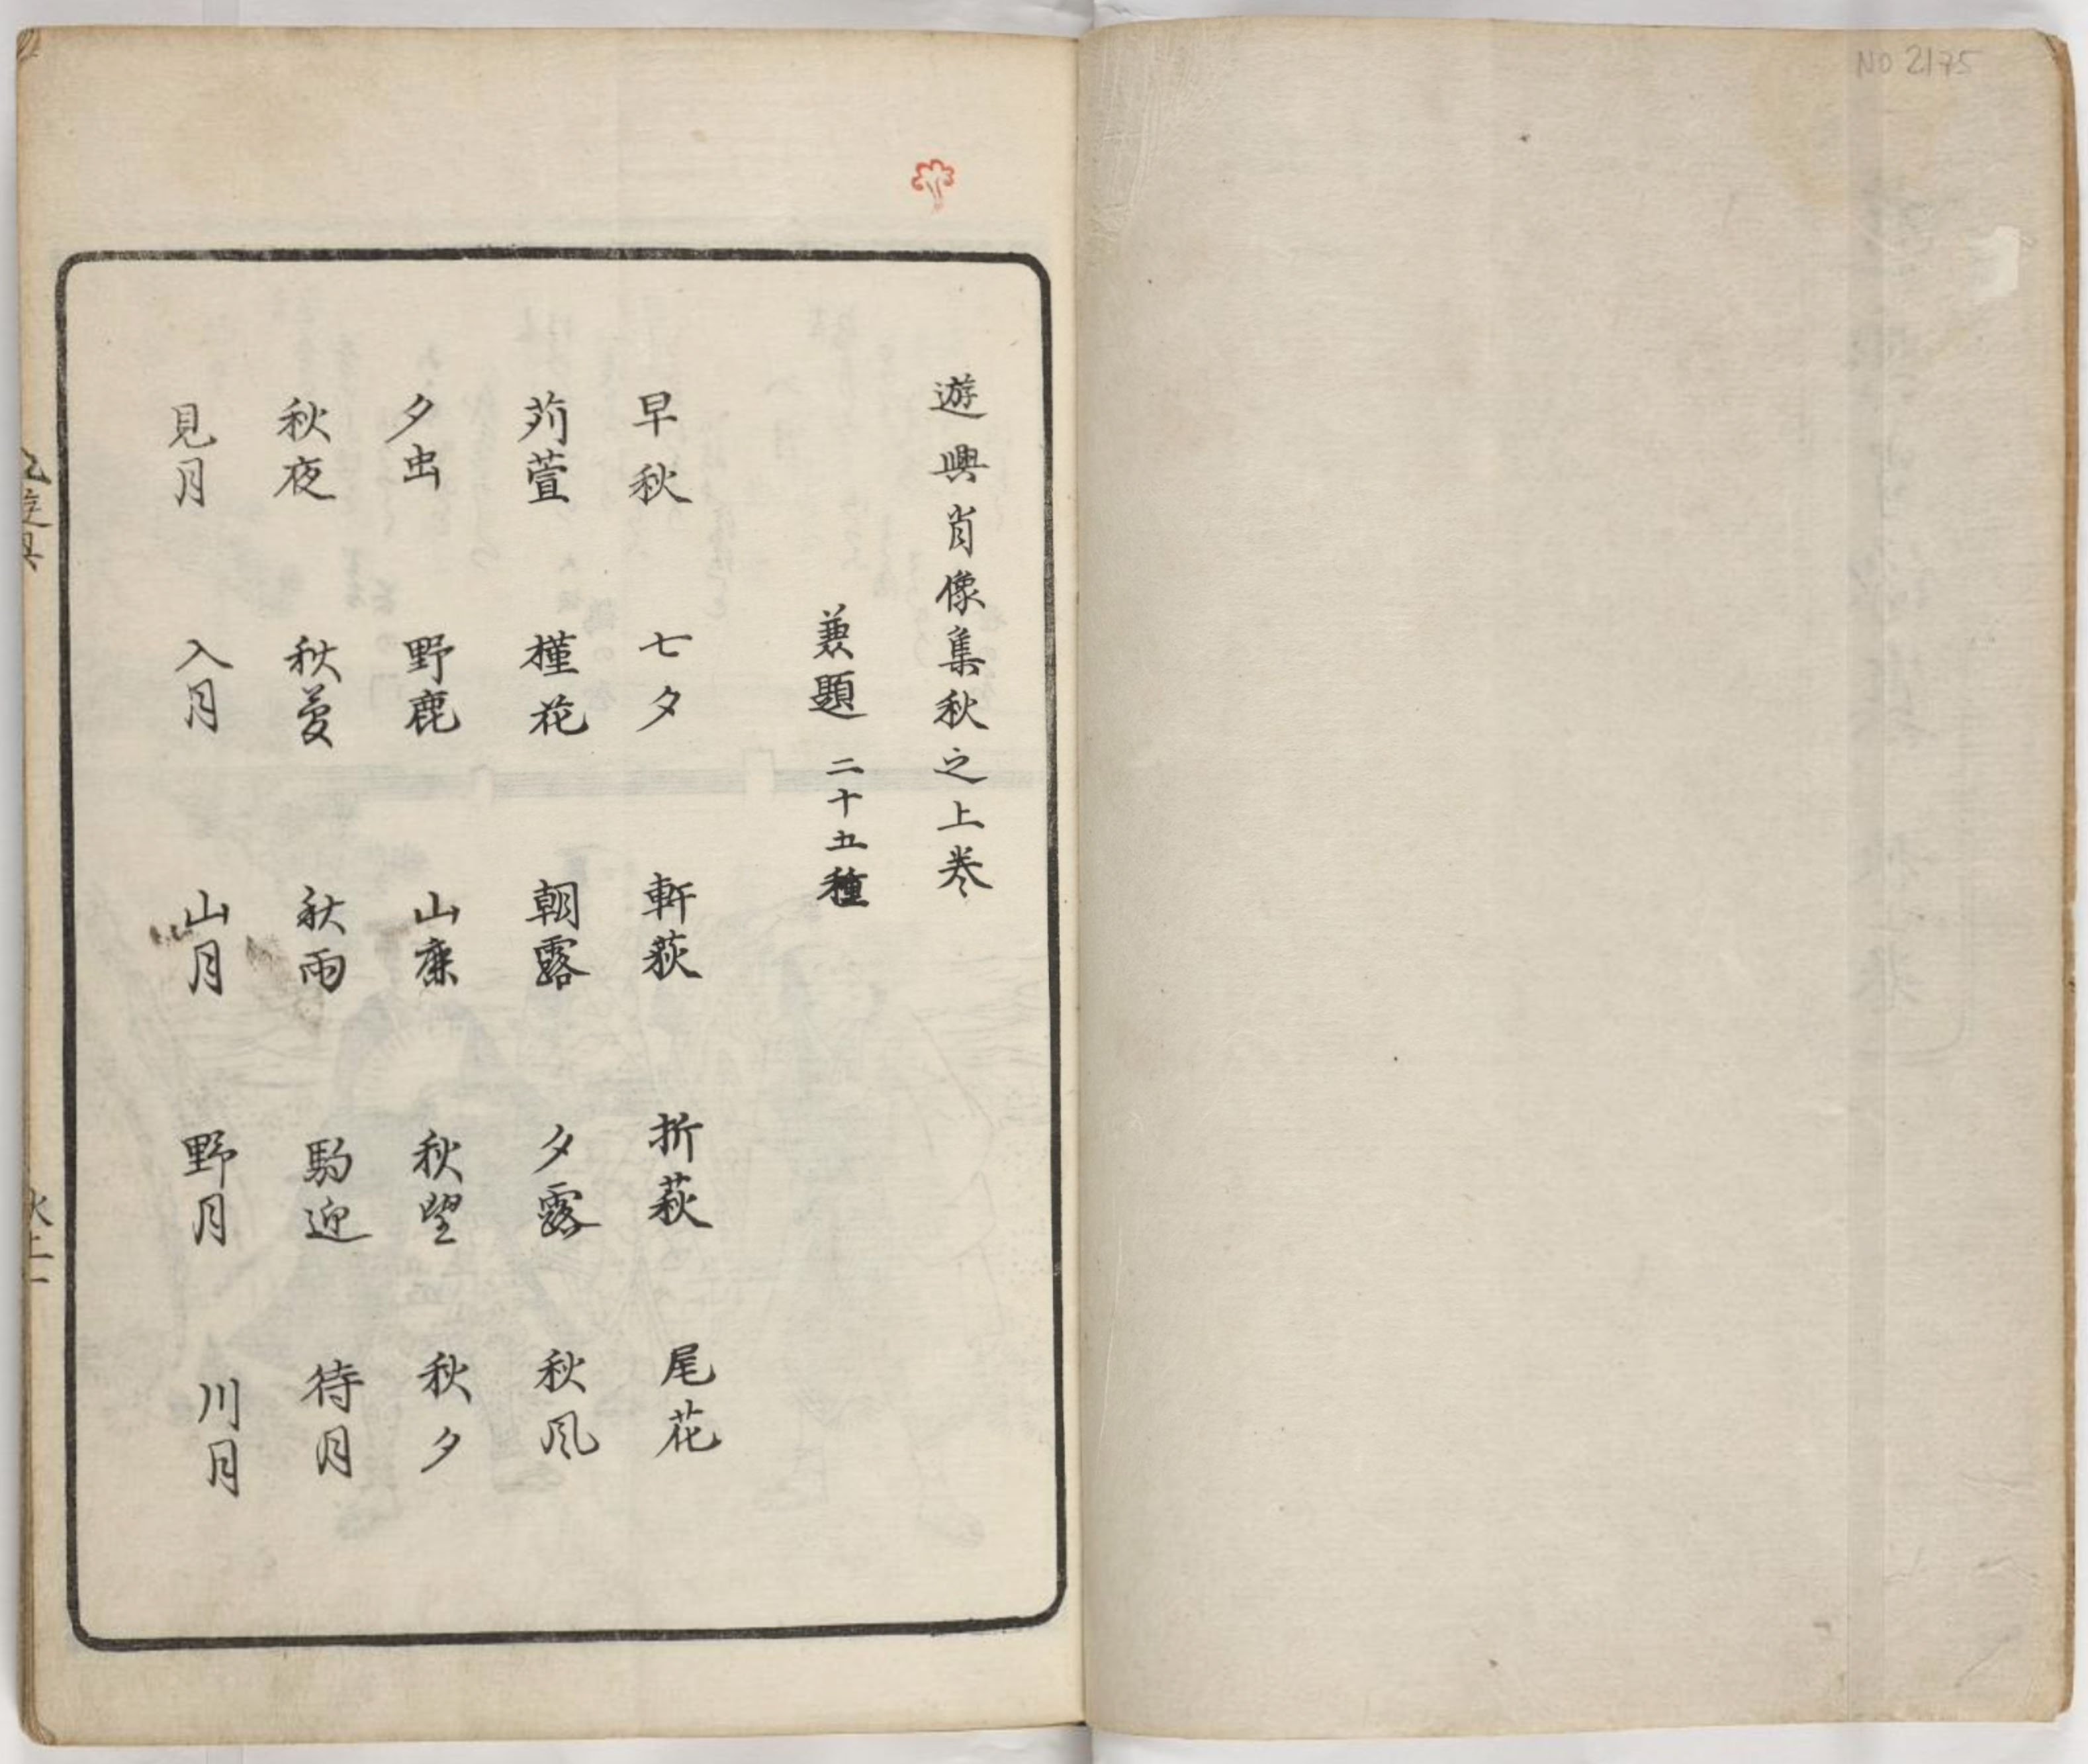 NO 2175
遊興肖像集秋之上巻
兼題 二十五種
早秋 七夕 軒荻 折萩 尾花
苅萱 槿花 朝露 夕露 秋風
夕虫 野鹿 山鹿 秋望 秋夕
秋夜 秋夢 秋雨 駒迎 待月
見月 入月 山月 野月 川月